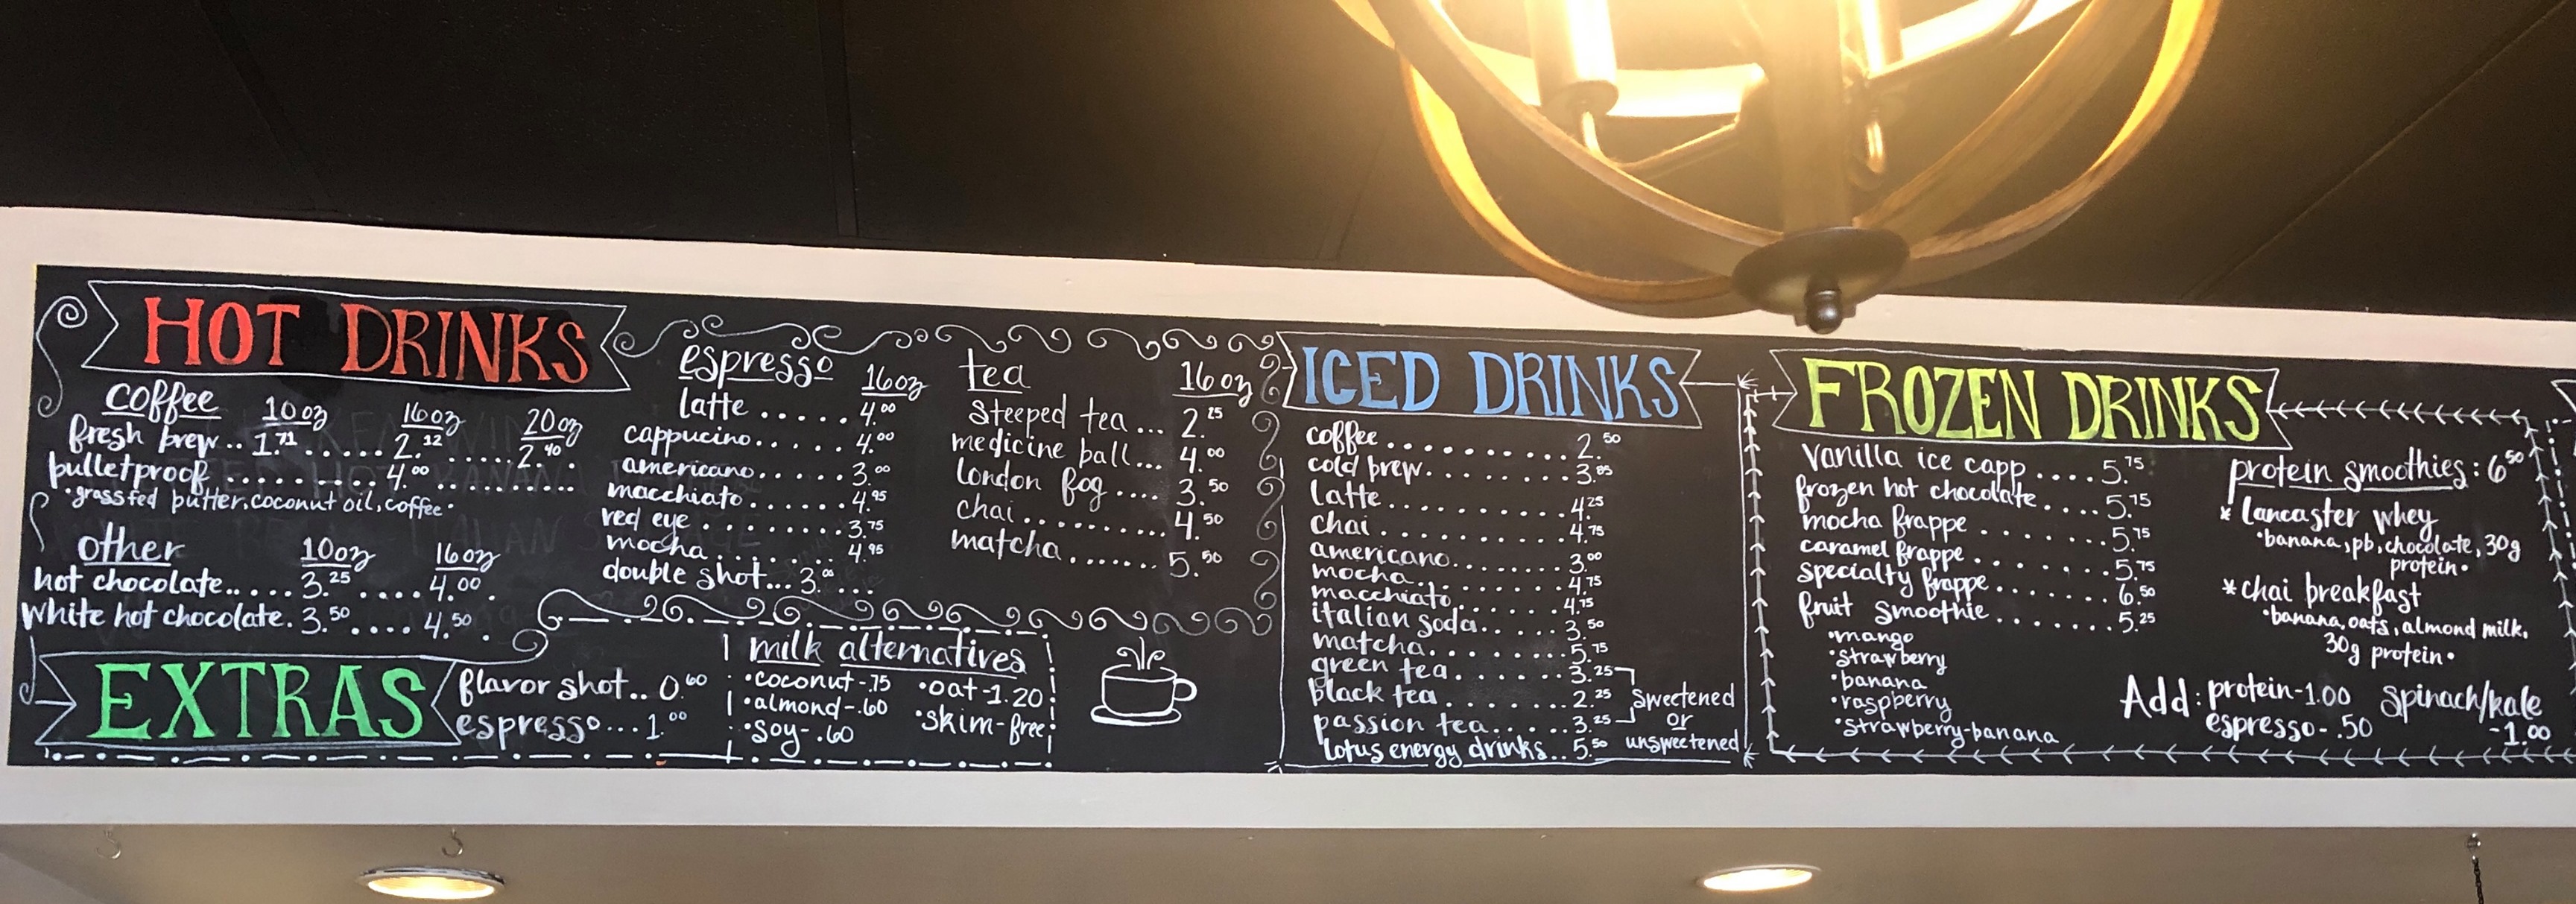 HOT DRINKS
coffee 10oz 16oz 20oz
fresh brew.. 1.71 ...... 2.12 ..... 2.40 .
bulletproof .......... 4.00 ..........
•grassfed butter, coconut oil, coffee•
other 10oz 16oz
hot chocolate..... 3.25 .... 4.00 .
white hot chocolate. 3.50 .... 4.50 .
espresso 16oz
latte ..... 4.00
cappucino..... 4.00
americano...... 3.00
macchiato...... 4.95
red eye ........ 3.75
mocha........ 4.95
double shot... 3.00 ...
tea 16oz
steeped tea ... 2.25
medicine ball... 4.00
london fog .... 3.50
chai.......... 4.50
matcha....... 5.50
EXTRAS
flavor shot.. 0.60
espresso... 1.00
milk alternatives
•coconut-.75 •oat-1.20
•almond-.60 •skim-free
•soy-.60
ICED DRINKS
coffee.......... 2.50
cold brew........ 3.85
latte........... 4.25
chai............ 4.75
americano........ 3.00
mocha.......... 4.75
macchiato....... 4.75
italian soda...... 3.50
matcha......... 5.75
green tea....... 3.25
black tea........ 2.25
passion tea...... 3.25
sweetened
or
unsweetened
lotus energy drinks.. 5.50
FROZEN DRINKS
vanilla ice capp .... 5.75
frozen hot chocolate.... 5.75
mocha frappe ....... 5.75
caramel frappe....... 5.75
specialty frappe....... 6.50
fruit smoothie....... 5.25
•mango
•strawberry
•banana
•raspberry
•strawberry-banana
protein smoothies: 6.50
* lancaster whey
•banana, pb, chocolate, 30g
protein•
* chai breakfast
•banana, oats, almond milk,
30g protein•
Add: protein-1.00 spinach/kale
espresso-.50 -1.00